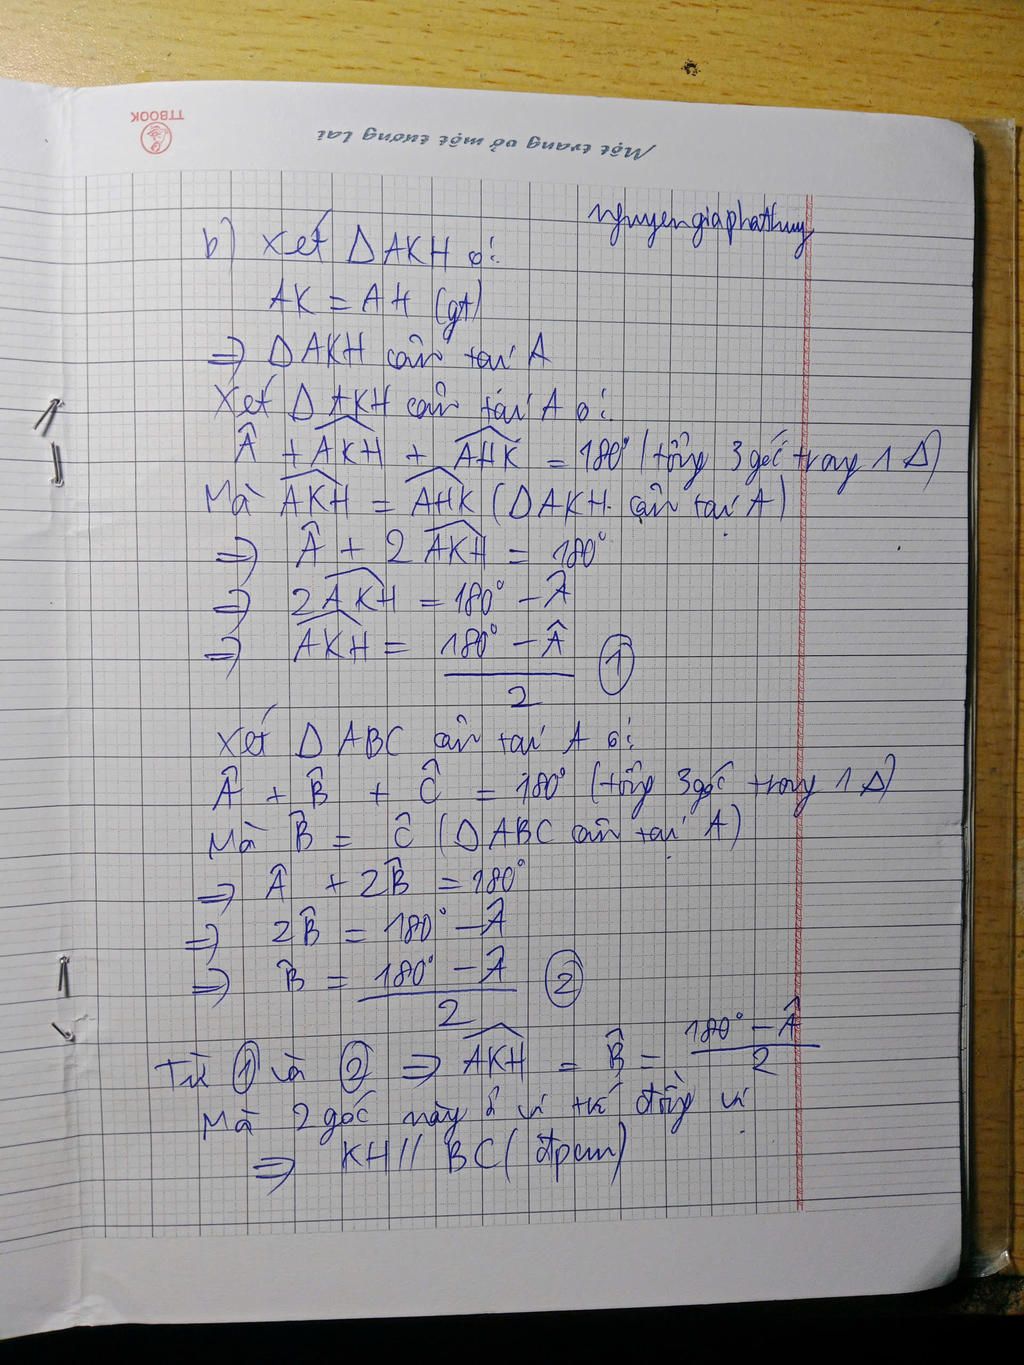 TTBOOK
Một trang vở một tương lai
nguyengiaphathuy
b) Xét Δ AKH có:
AK = AH (gt)
=> Δ AKH cân tại A
Xét Δ AKH cân tại A có:
Â + AKH + AHK = 180° (tổng 3 góc trong 1 Δ)
Mà AKH = AHK (Δ AKH cân tại A)
=> Â + 2 AKH = 180°
=> 2 AKH = 180° - Â
=> AKH = (180° - Â) / 2 ①
Xét Δ ABC cân tại A có:
Â + B̂ + Ĉ = 180° (tổng 3 góc trong 1 Δ)
Mà B̂ = Ĉ (Δ ABC cân tại A)
=> Â + 2B̂ = 180°
=> 2B̂ = 180° - Â
=> B̂ = (180° - Â) / 2 ②
Từ ① và ② => AKH = B̂ = (180° - Â) / 2
Mà 2 góc này ở vị trí đồng vị
=> KH // BC (đpcm)